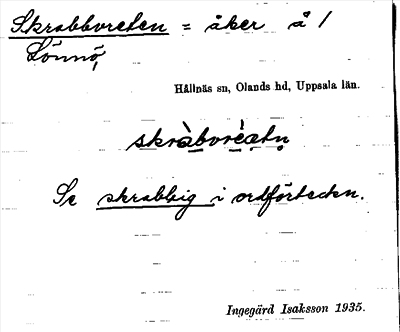 Skrabbvreten = åker å /
Lönnö,
Hållnäs sn, Olands hd, Uppsala län.
skràbvrèętn̥
Se skrabbig i ordförteckn.
Ingegärd Isaksson 1935.